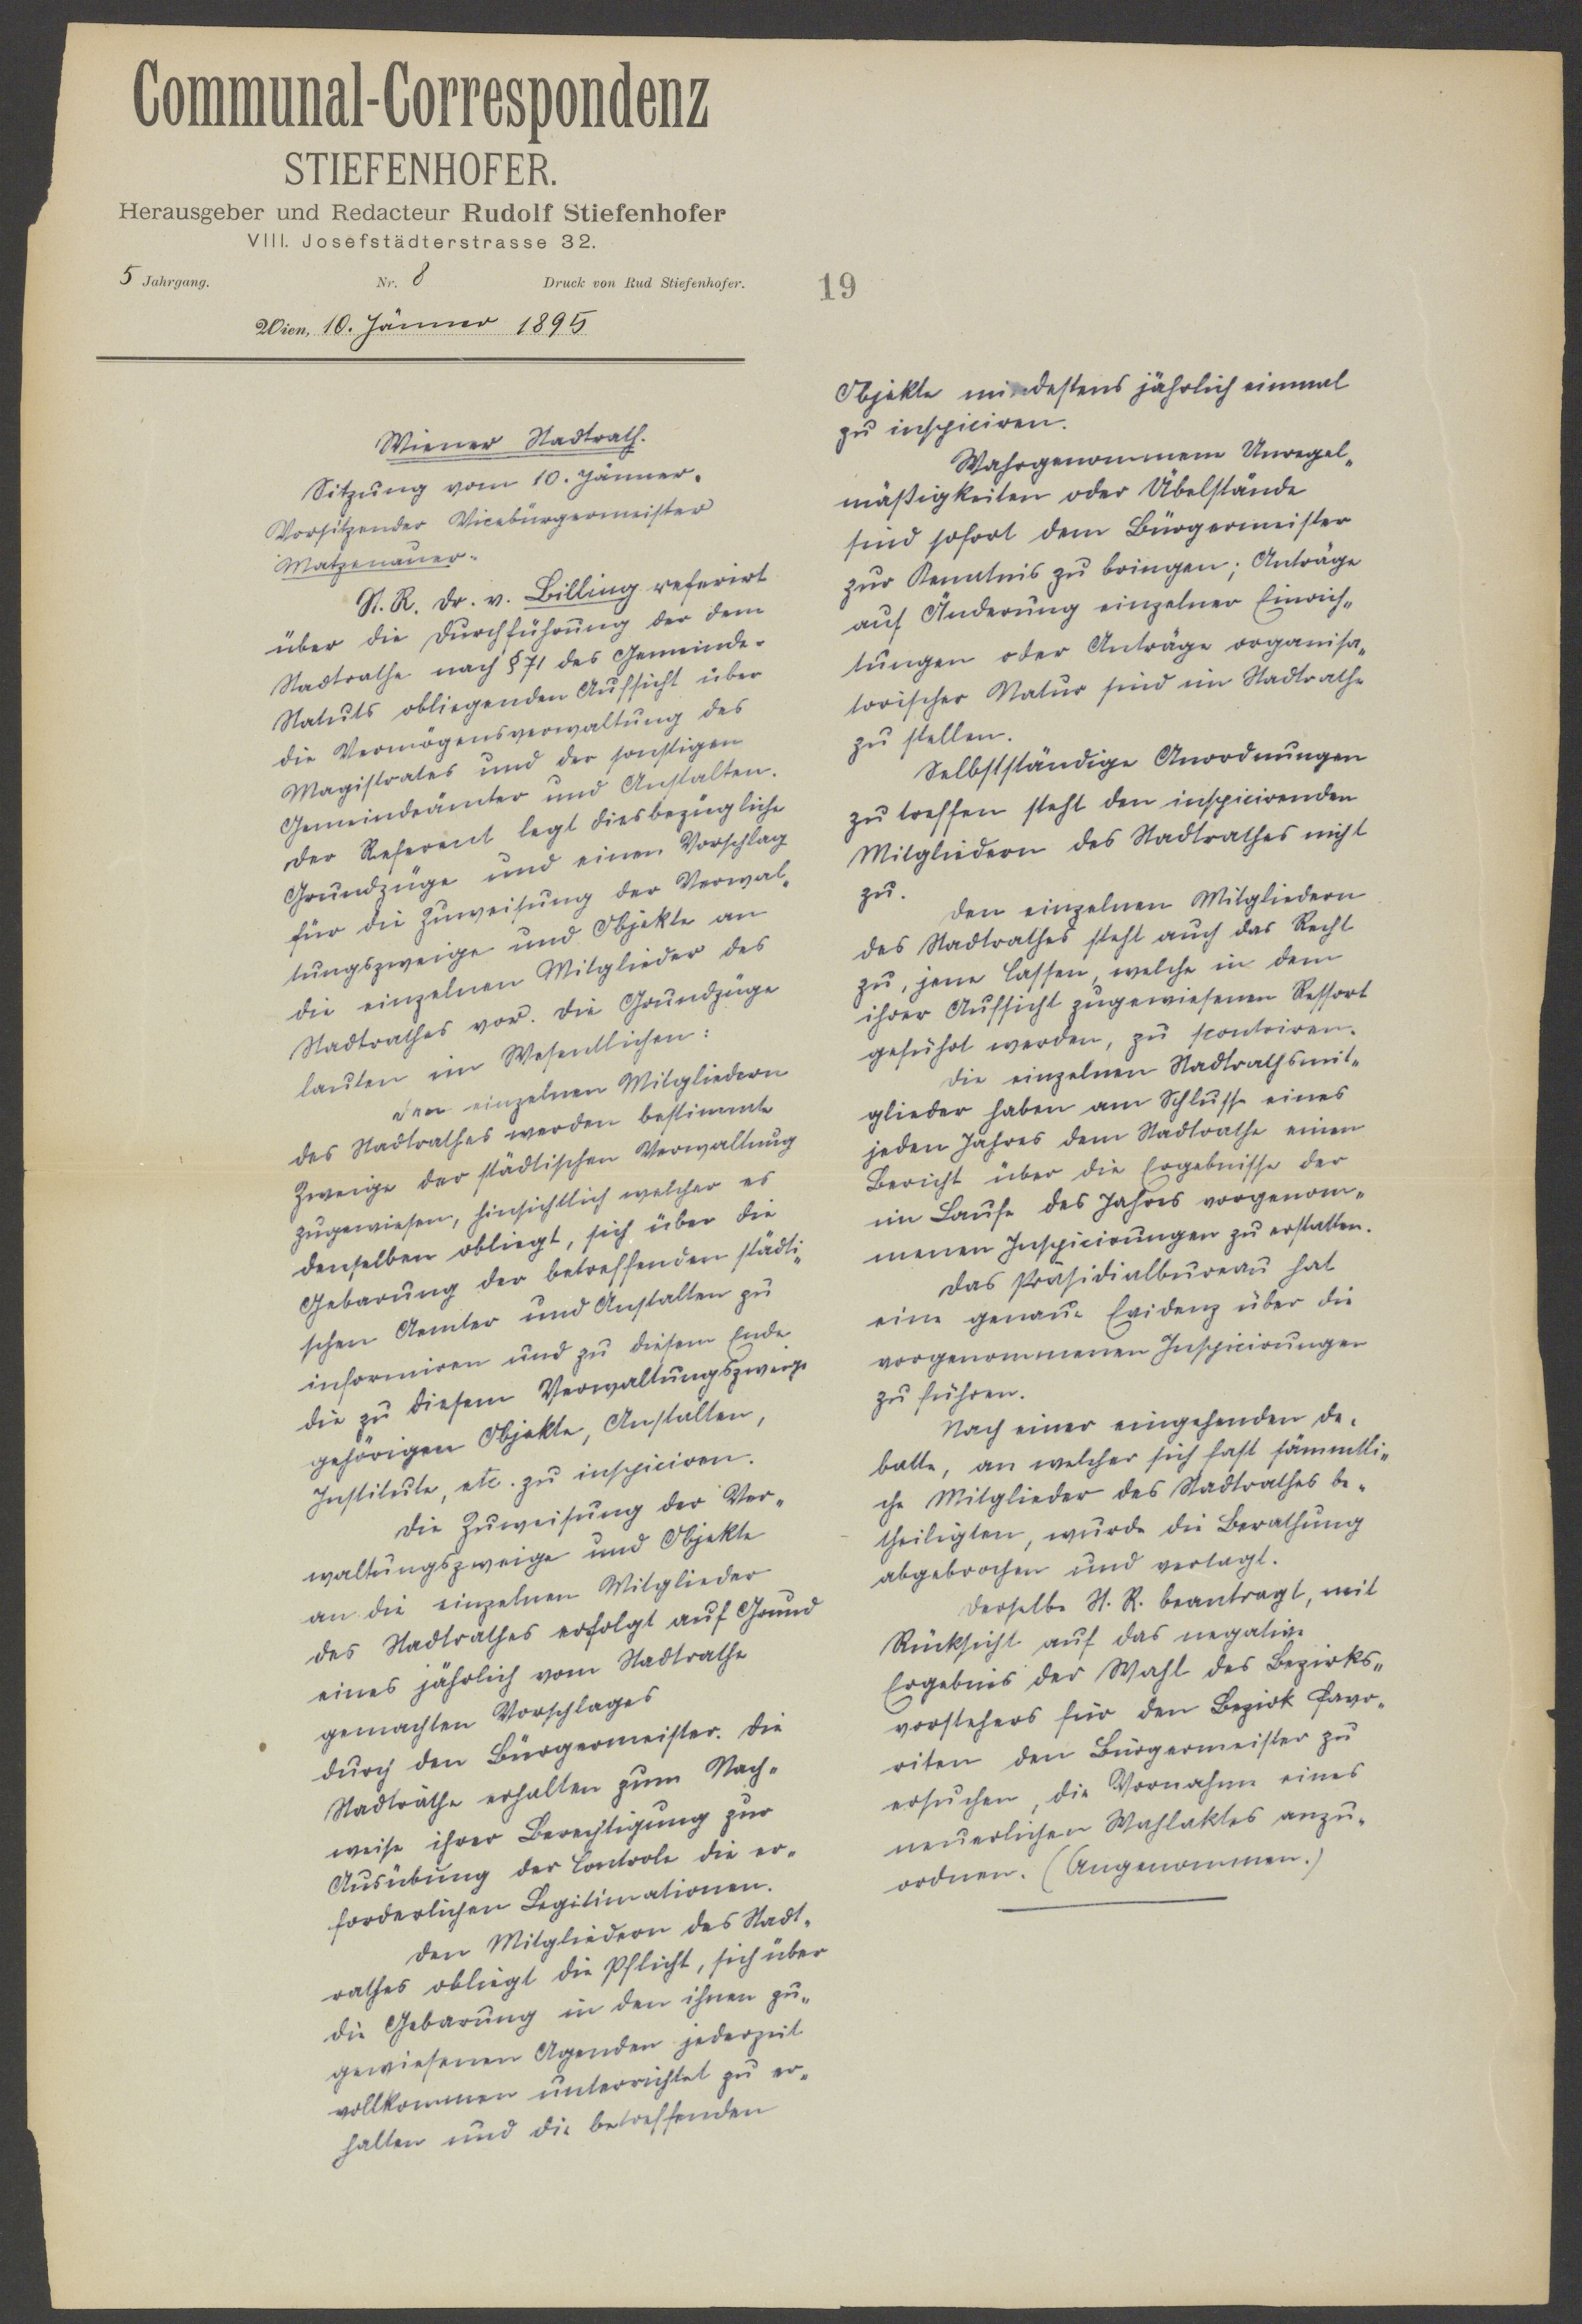 Communal-Correspondenz
STIEFENHOFER.
Herausgeber und Redacteur Rudolf Stiefenhofer
VIII. Josefstädterstrasse 32.
5 Jahrgang. Nr. 8 Druck von Rud Stiefenhofer.
Wien, 10. Jänner 1895
19
Wiener Stadtrath.
Sitzung vom 10. Jänner.
Vorsitzender Vicebürgermeister
Matzenauer.
St. R. Dr. v. Billing referirt
über die Durchführung der dem
Stadtrathe nach § 71 des Gemeinde-
Statuts obliegenden Aufsicht über
die Vermögensverwaltung des
Magistrates und der sonstigen
Gemeindeämter und Anstalten.
Der Referent legt diesbezügliche
Grundzüge und einen Vorschlag
für die Zuweisung der Verwal„
tungszweige und Objekte an
die einzelnen Mitglieder des
Stadtrathes vor. Die Grundzüge
lauten im Wesentlichen:
Den einzelnen Mitgliedern
des Stadtrathes werden bestimmte
Zweige der städtischen Verwaltung
zugewiesen, hinsichtlich welcher es
denselben obliegt, sich über die
Gebarung der betreffenden städti„
schen Aemter und Anstalten zu
informiren und zu diesem Ende
die zu diesem Verwaltungszweige
gehörigen Objekte, Anstalten,
Institute, etc. zu inspiciren.
Die Zuweisung der Ver„
waltungszweige und Objekte
an die einzelnen Mitglieder
des Stadtrathes erfolgt auf Grund
eines jährlich vom Stadtrathe
gemachten Vorschlages
durch den Bürgermeister. Die
Stadträthe erhalten zum Nach„
weise ihrer Berechtigung zur
Ausübung der Controle die er„
forderlichen Legitimationen.
Den Mitgliedern des Stadt„
rathes obliegt die Pflicht, sich über
die Gebarung in den ihnen zu„
gewiesenen Agenden jederzeit
vollkommen unterrichtet zu er„
halten und die betreffenden
Objekte mindestens jährlich einmal
zu inspiciren.
Wahrgenommene Unregel„
mäßigkeiten oder Übelstände
sind sofort dem Bürgermeister
zur Kenntnis zu bringen; Anträge
auf Änderung einzelner Einrich„
tungen oder Anträge organisa„
torischer Natur sind im Stadtrathe
zu stellen.
Selbstständige Anordnungen
zu treffen steht den inspicirenden
Mitgliedern des Stadtrathes nicht
zu.
Den einzelnen Mitgliedern
des Stadtrathes steht auch das Recht
zu, jene Cassen, welche in dem
ihrer Aufsicht zugewiesenen Ressort
geführt werden, zu scontriren.
Die einzelnen Stadtrathsmit„
glieder haben am Schlusse eines
jeden Jahres dem Stadtrathe einen
Bericht über die Ergebnisse der
im Laufe des Jahres vorgenom„
menen Inspicirungen zu erstatten.
Das Präsidialbureau hat
eine genaue Evidenz über die
vorgenommenen Inspicirungen
zu führen.
Nach einer eingehenden De„
batte, an welcher sich fast sämmtli„
che Mitglieder des Stadtrathes be„
theiligten, wurde die Berathung
abgebrochen und vertagt.
Derselbe St. R. beantragt, mit
Rücksicht auf das negative
Ergebnis der Wahl des Bezirks„
vorstehers für den Bezirk Favo„
riten den Bürgermeister zu
ersuchen, die Vornahme eines
neuerlichen Wahlaktes anzu„
ordnen. (Angenommen.)